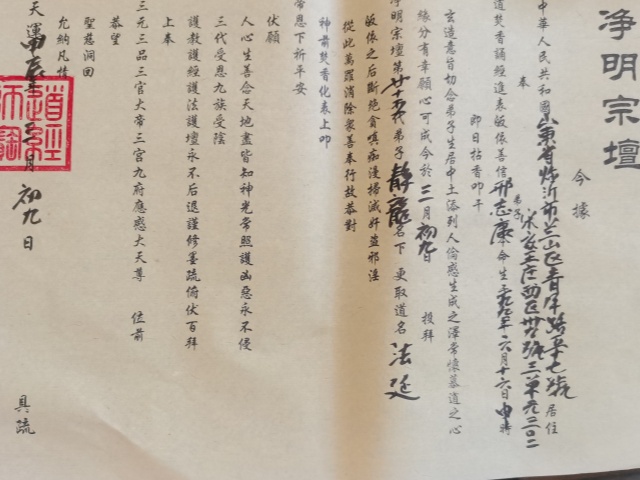 净明宗壇
今據
中華人民共和國山東省臨沂市兰山区青年路莘七號居住
奉
道焚香誦經進表皈依善信邢志康本命生 年六月十六日申時
弟子
即日拈香叩干
玄造意旨切念弟子生居中土忝列人倫感生成之澤常懷慕道之心
緣分有幸願心可成今於三月初九日投拜
淨明宗壇第廿十五代弟子靜龍名下更取道名法廷
皈依之后斷絕貪嗔痴漫掃滅奸盗邪淫
從此萬罪消除衆善奉行故恭對
神前焚香化表上叩
帝恩下祈平安
伏願
人心生善念天地盡皆知神光常照護凶惡永不侵
三代受恩九族受陰
護教護經護法護壇永不后退謹修墨疏俯伏百拜
上奉
三元三品三官大帝三宮九府應感大天尊 位前
恭望
聖慈洞回
允納凡情
天運甲辰年三月初九日 具疏
道經師寶